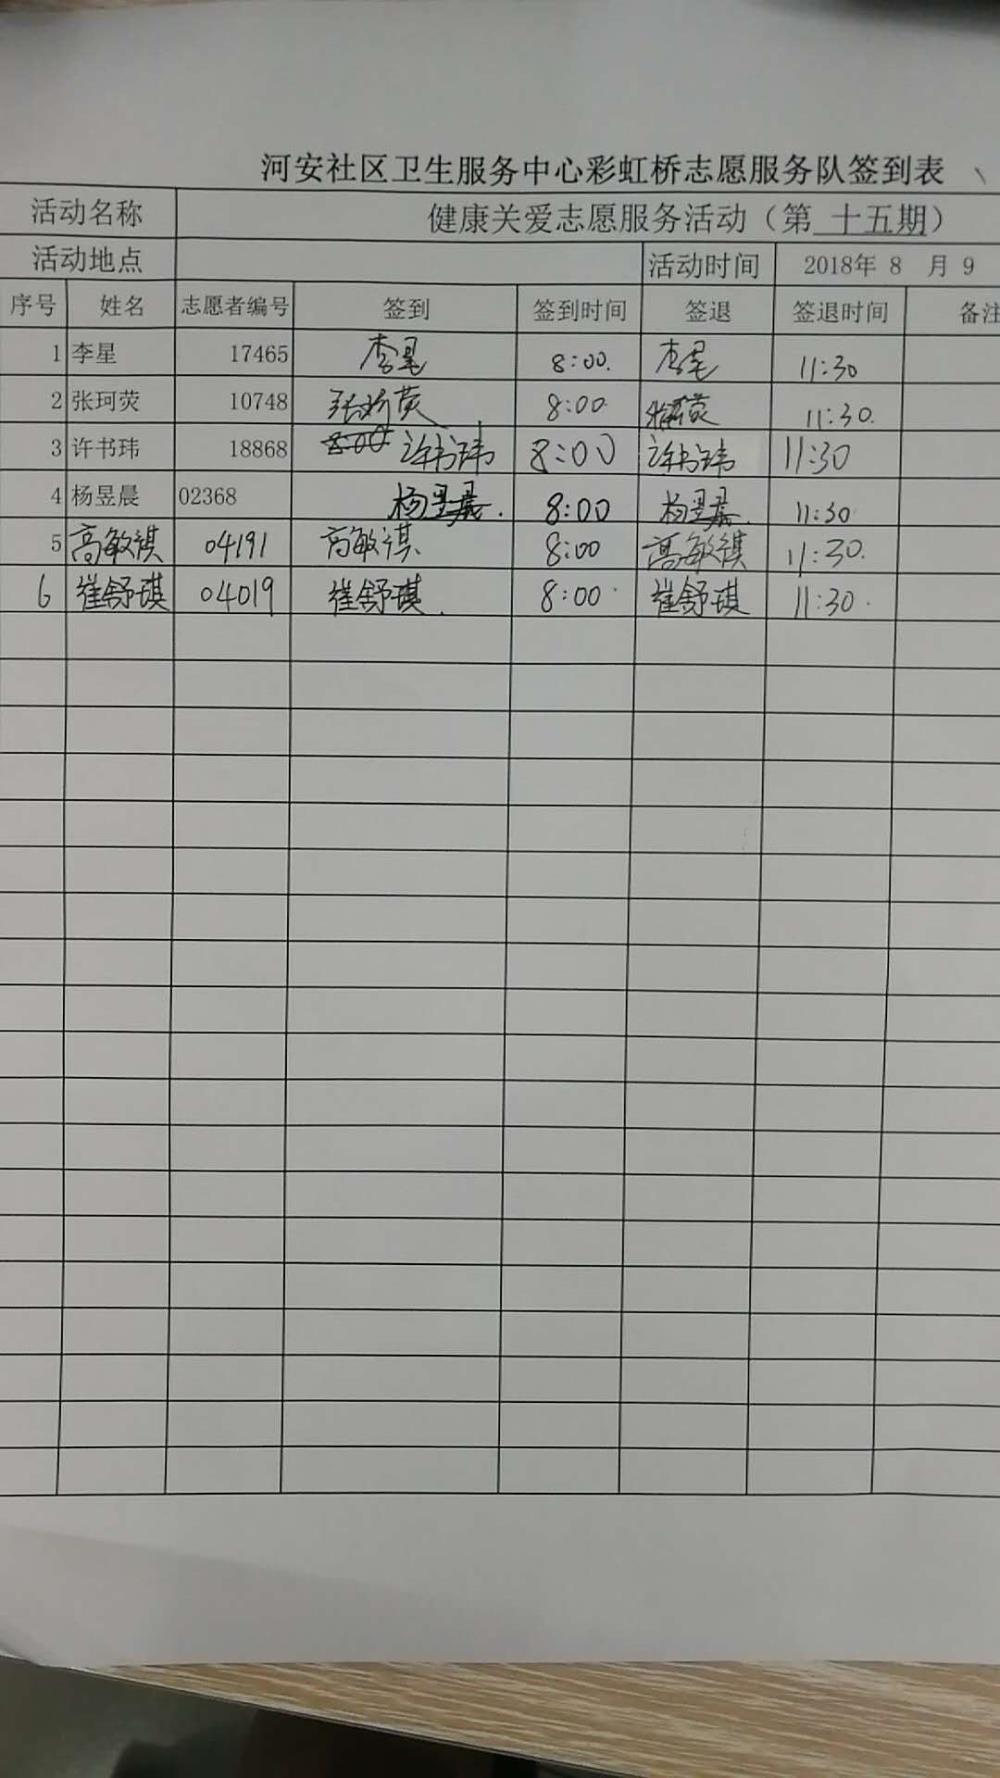 河安社区卫生服务中心彩虹桥志愿服务队签到表
活动名称 健康关爱志愿服务活动（第 十五期）
活动地点 活动时间 2018年 8 月 9
序号 姓名 志愿者编号 签到 签到时间 签退 签退时间 备注
1 李星 17465 李星 8:00. 李星 11:30
2 张珂荧 10748 张珂荧 8:00 张珂荧 11:30.
3 许书玮 18868 8:00 许书玮 8:00 许书玮 11:30
4 杨昱晨 02368 杨昱晨. 8:00 杨昱晨. 11:30
5 高敏祺 04191 高敏祺. 8:00 高敏祺 11:30.
6 崔舒琪 04019 崔舒琪. 8:00. 崔舒琪 11:30.